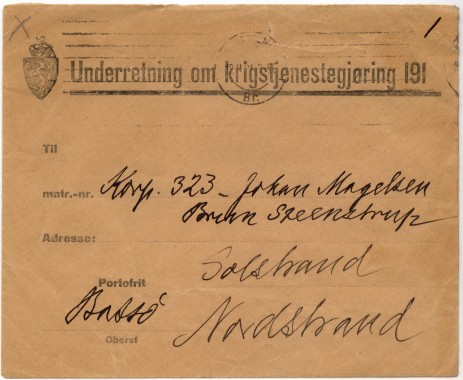 Underretning om krigstjenestegjøring 191
Til
matr.-nr. Korp. 323 - Johan Magelsen
Brun Steenstrup
Adresse:
Solstrand
Portofrit
Nordstrand
Oberst